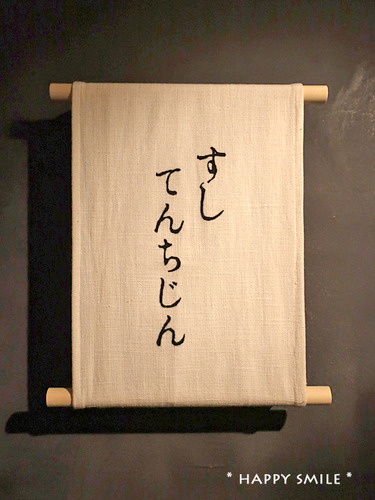 すし
てんちじん
* HAPPY SMILE *